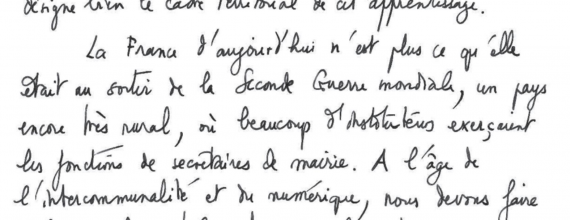 désigne bien le cadre territorial de cet apprentissage.
La France d'aujourd'hui n'est plus ce qu'elle
était au sortir de la Seconde Guerre mondiale, un pays
encore très rural, où beaucoup d'instituteurs exerçaient
les fonctions de secrétaires de mairie. A l'âge de
l'intercommunalité et du numérique, nous devons faire